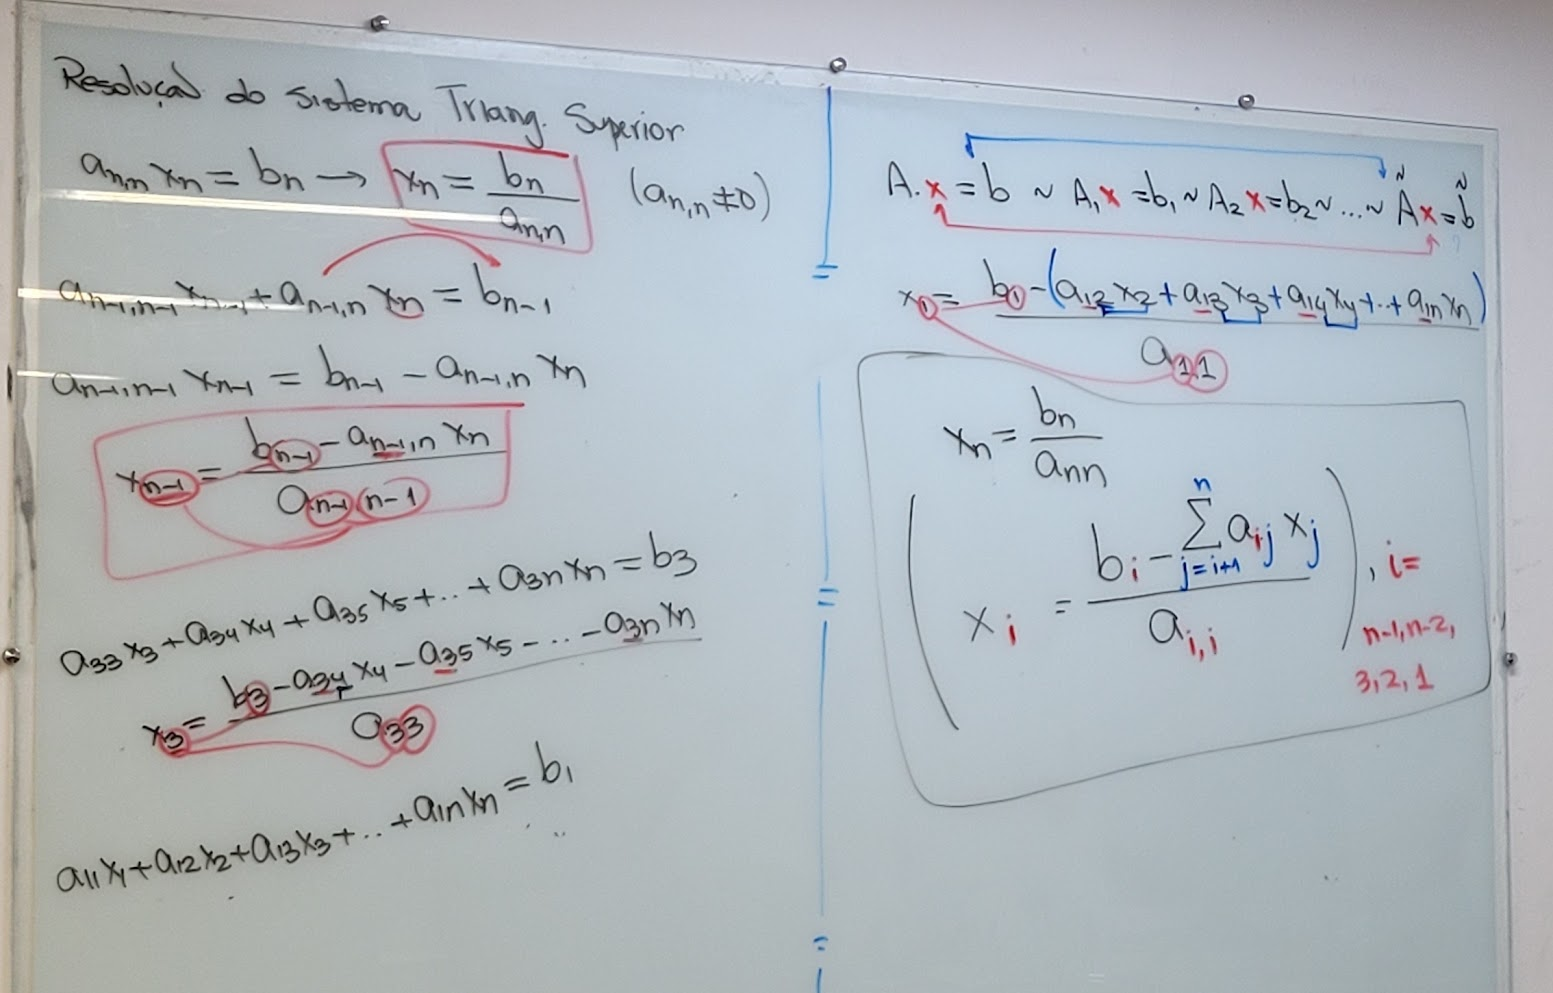 Resolução do sistema Triang. Superior
an,n xn = bn → xn = bn/an,n (an,n ≠ 0)
an-1,n-1 xn-1 + an-1,n xn = bn-1
an-1,n-1 xn-1 = bn-1 - an-1,n xn
xn-1 = (bn-1 - an-1,n xn)/an-1 n-1
a33 x3 + a34 x4 + a35 x5 + .. + a3n xn = b3
x3 = (b3 - a34 x4 - a35 x5 - ... - a3n xn)/a33
a11 x1 + a12 x2 + a13 x3 + .. + a1n xn = b1
A.x = b ~ A1x = b1 ~ A2x = b2 ~ ... ~ Ãx = b̃
x1 = (b1 - (a12 x2 + a13 x3 + a14 x4 + .. + a1n xn))/a1,1
xn = bn/ann
(xi = (bi - Σ_{j=i+1}^{n} aij xj)/ai,i), i =
n-1, n-2,
3, 2, 1